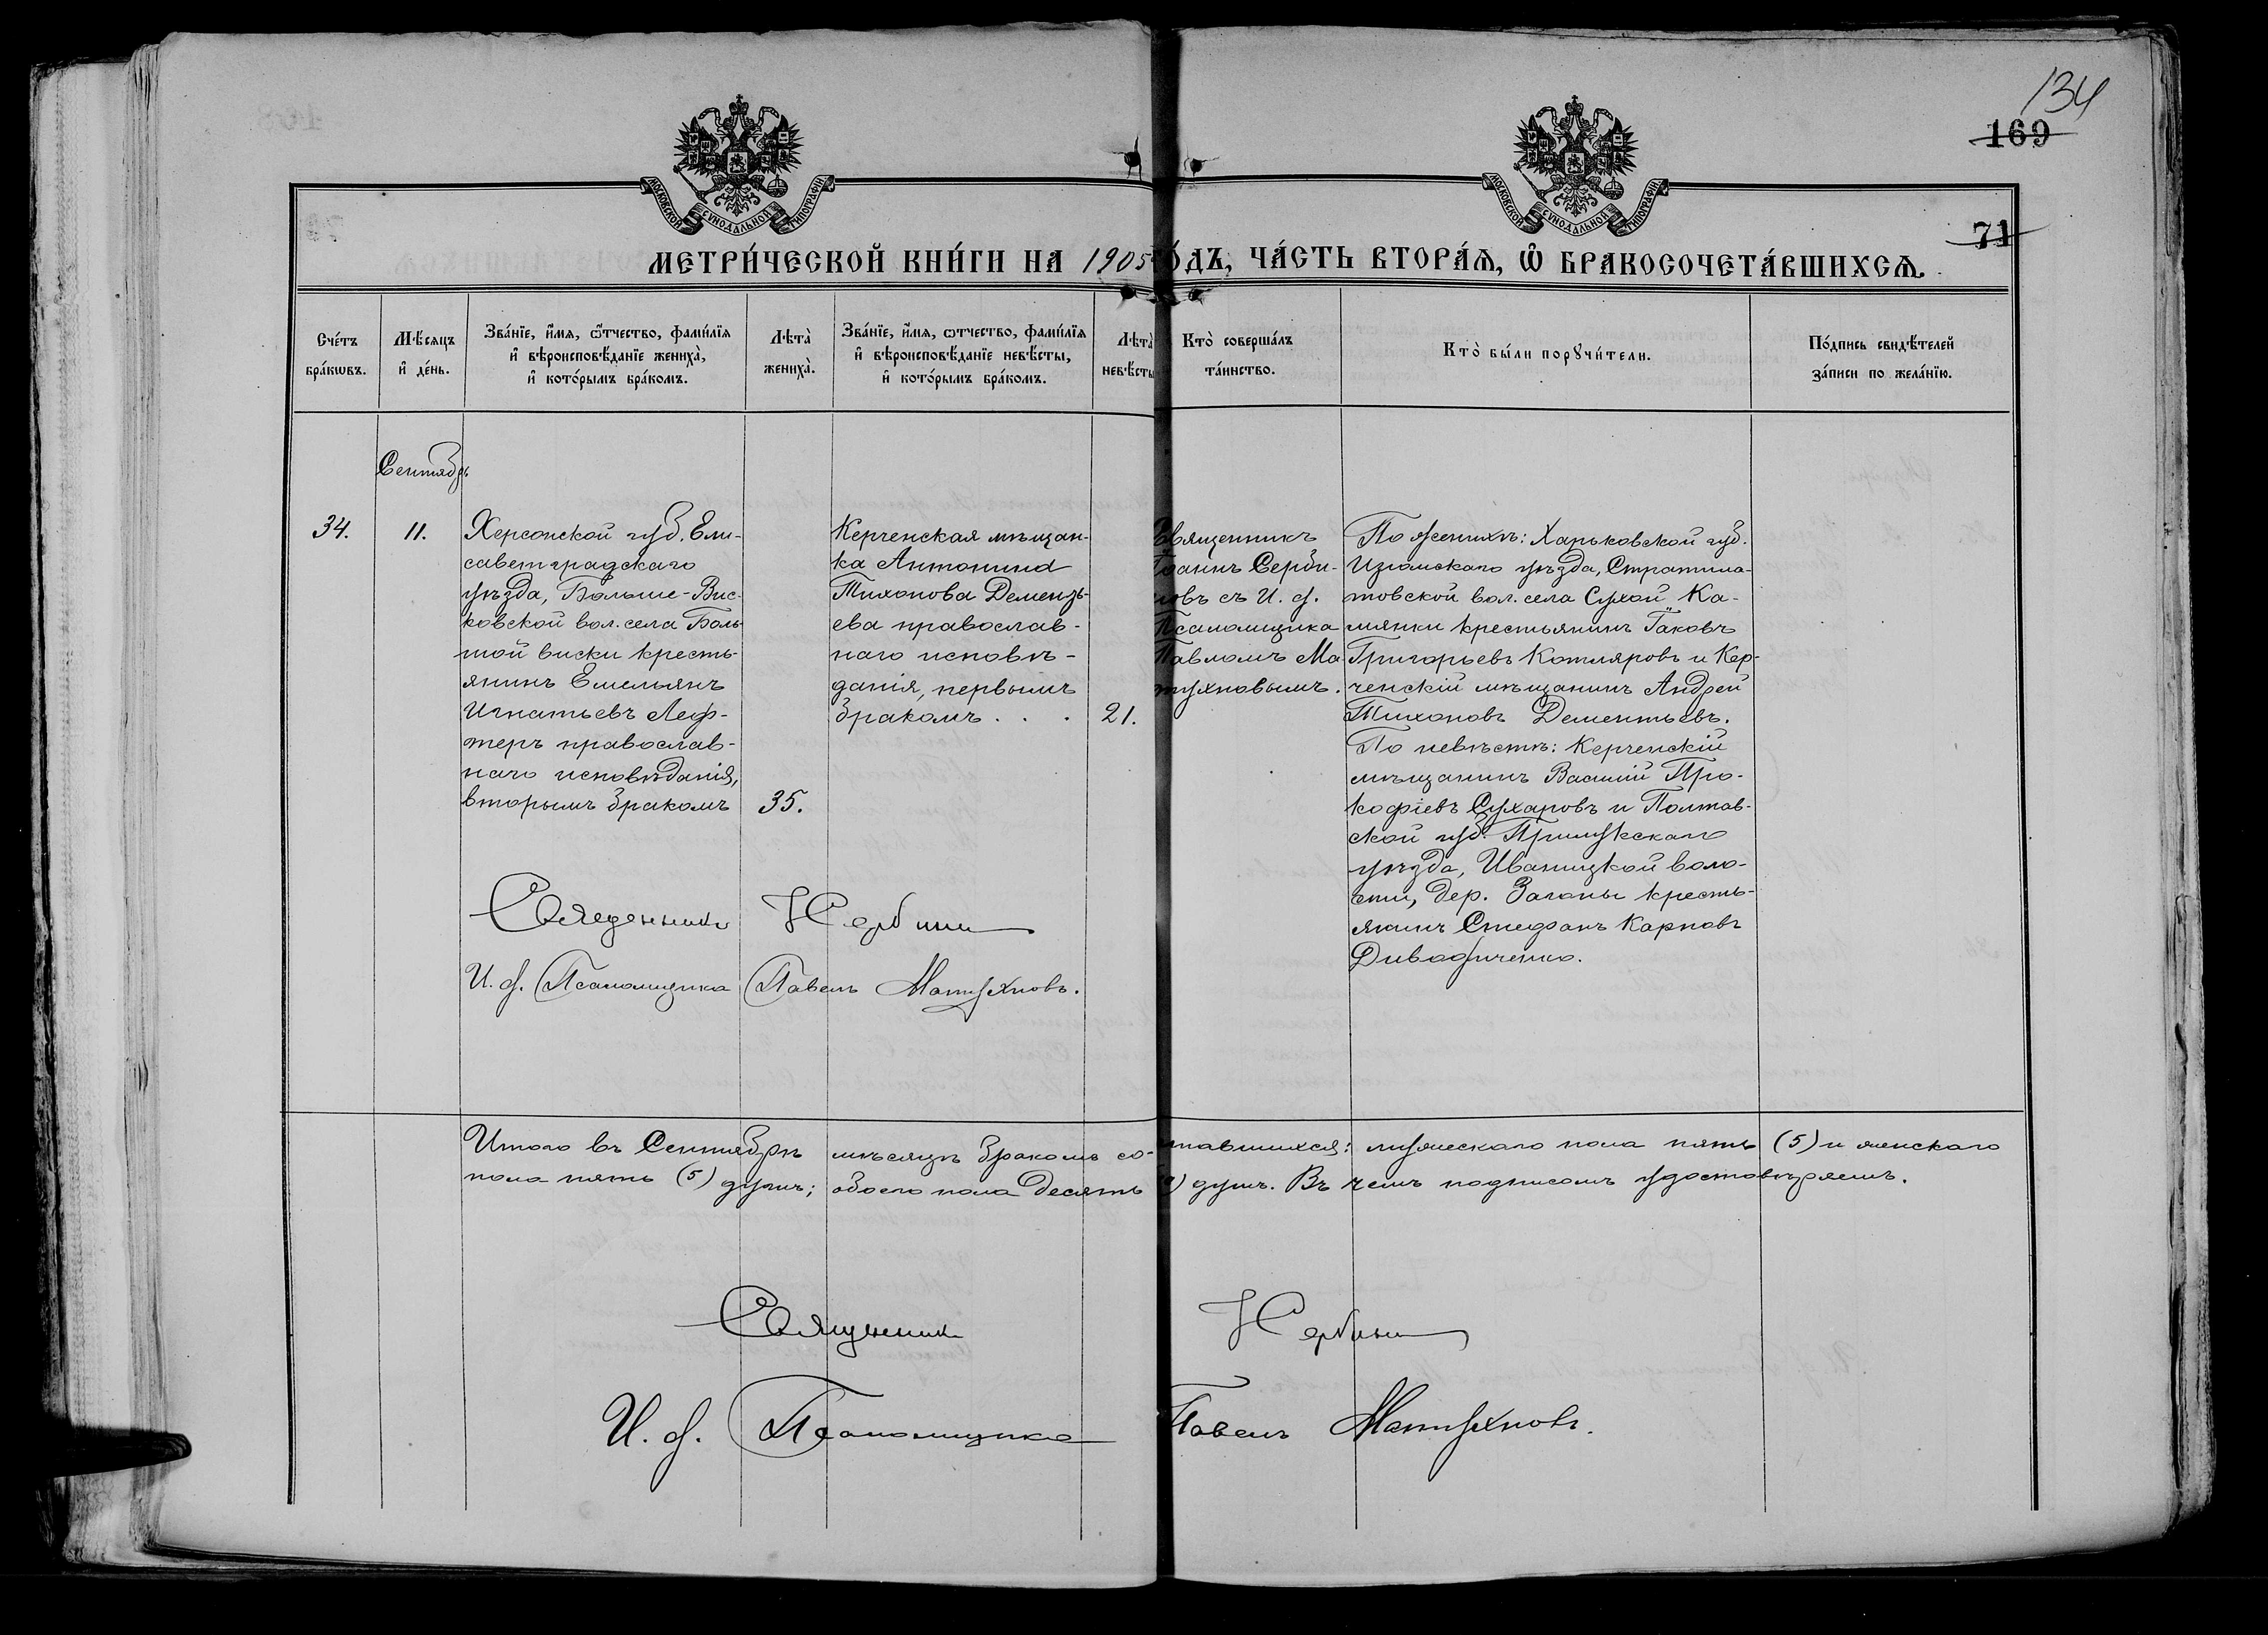 134
169
71
МОСКОВСКОЙ СѴНОДАЛЬНОЙ ТИПОГРАФІИ
МОСКОВСКОЙ СѴНОДАЛЬНОЙ ТИПОГРАФІИ
МЕТРИ́ЧЕСКОЙ КНИ́ГИ НА 1905 ГО́ДЪ, ЧА́СТЬ ВТОРА́Ѧ, Ѽ БРАКОСОЧЕТА́ВШИХСѦ.
Сче́тъ
бра́кѡвъ.
Мѣ́сяцъ
и҆ де́нь.
Зва́нїе, и҆́мѧ, ѻ҆́тчество, фами́лїѧ
и҆ вѣроисповѣ́данїе жениха̀,
и҆ кото́рымъ бра́комъ.
Лѣта̀
жениха̀.
Зва́нїе, и҆́мѧ, ѻтчество, фами́лїѧ
и҆ вѣроисповѣ́данїе невѣ́сты,
и҆ кото́рымъ бра́комъ.
Лѣта̀
невѣ́сты
Кто̀ соверша́лъ
та́инство.
Кто̀ бы́ли порꙋчи́тели.
По́дпись свидѣ́телей
за́писи по жела́нїю.
Сентябрь
34.
11.
Херсонской губ. Ели-
саветградскаго
уѣзда, Больше-Вис-
ковской вол. села Боль-
шой виски кресть-
янинъ Емельянъ
Игнатьевъ Леф-
теръ православ-
наго исповѣданія,
вторымъ бракомъ
35.
Керченская мѣщан-
ка Антонина
Тихонова Дементь-
ева православ-
наго исповѣ-
данія, первымъ
бракомъ . . .
21.
Священникъ
Іоаннъ Серби-
новъ съ И. д.
Псаломщика
Павломъ Ма-
тухновымъ.
По женихѣ: Харьковской губ.
Изюмскаго уѣзда, Стратила-
товской вол. села Сухой Ка-
мянки крестьянинъ Іаковъ
Григорьевъ Котляровъ и Кер-
ченскій мѣщанинъ Андрей
Тихоновъ Дементьевъ.
По невѣстѣ: Керченскій
мѣщанинъ Василій Про-
кофіевъ Сухаровъ и Полтав-
ской губ. Прилукскаго
уѣзда, Иваницкой воло-
сти, дер. Заганы кресть-
янинъ Стефанъ Карповъ
Священникъ І Сербинов
И. д. Псаломщика Павелъ Матухновъ.
Итого въ Сентябрѣ мѣсяцѣ бракомъ со- тавшихся: мужескаго пола пять (5) и женскаго
пола пять (5) душъ; обоего пола десять душъ. Въ чемъ подписомъ удостовѣряемъ.
Священникъ І Сербинов
И. д. Псаломщика Павелъ Матухновъ.